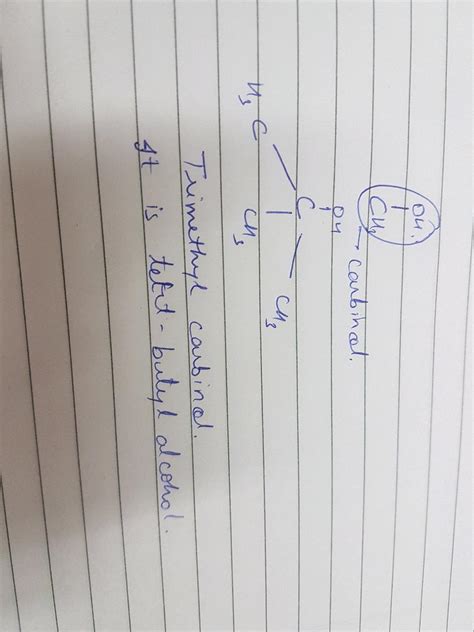 OH.
CH₂ → carbinol.
OH
H₃C C CH₃
CH₃
Trimethyl carbinol.
It is tert-butyl alcohol.